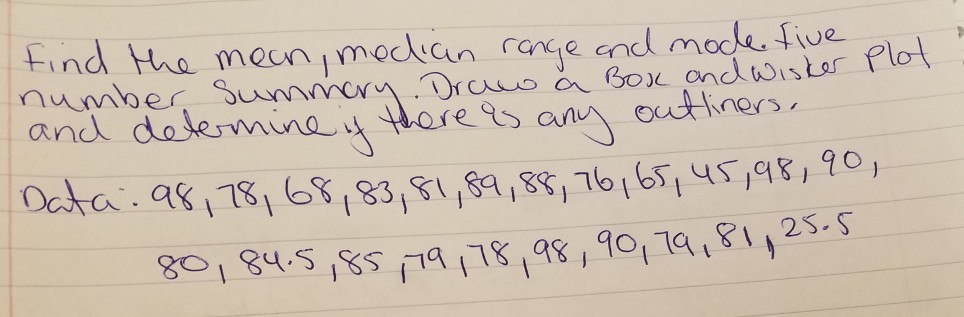 Find the mean, median range and mode. five
number Summary. Draw a Box and wisker Plot
and determine if there is any outliners.
Data: 98, 78, 68, 83, 81, 89, 88, 76, 65, 45, 98, 90,
80, 84.5, 85, 79, 78, 98, 90, 79, 81, 25.5